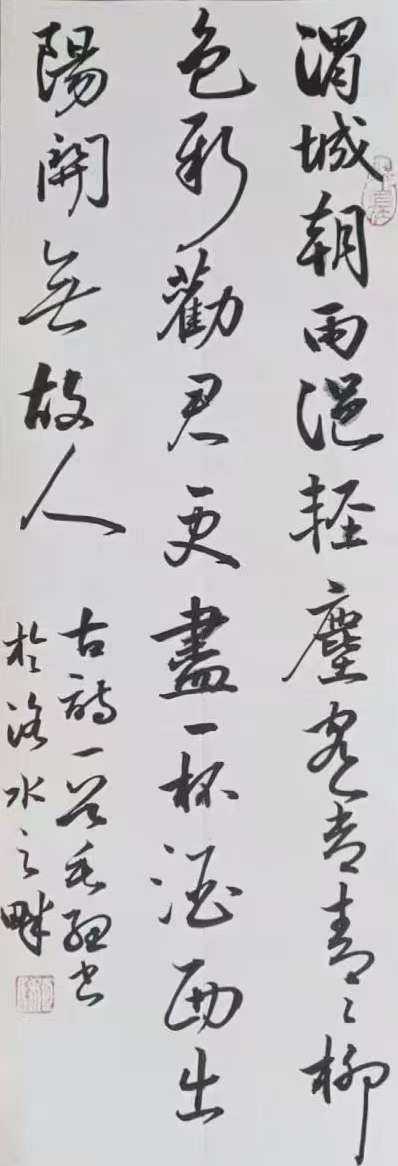 渭城朝雨浥輕塵客舍青々柳
色新勸君更盡一杯酒西出
陽開無故人
古詩一首書
於洛水之畔